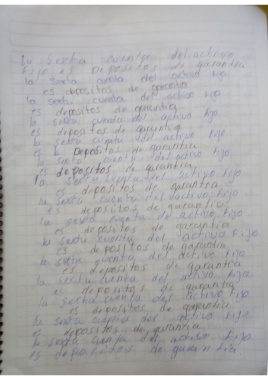 la sexta cuenta del activo
fijo es Depositos de garantia
la sexta cuenta del activo fijo
es depositos de garantia
la sexta cuenta del activo fijo
es depositos de garantia
la sexta cuenta del activo fijo
es depositos de garantia
la sexta cuenta del activo fijo
es Depositos de garantia
la sexta cuenta del activo fijo
es depositos de garantia
la sexta cuenta del activo fijo
es depositos de garantia
la sexta cuenta del activo fijo
es depositos de garantia
la sexta cuenta de activo fijo
es depositos de garantia
la sexta cuenta del activo fijo
es depositos de garantia
la sexta cuenta del activo fijo
es depositos de garantia
la sexta cuenta del activo fijo
es depositos de garantia
la sexta cuenta del activo fijo
es depositos de garantia
la sexta cuenta del activo fijo
es depositos de garantia
la sexta del activo fijo
es depositos de garantia